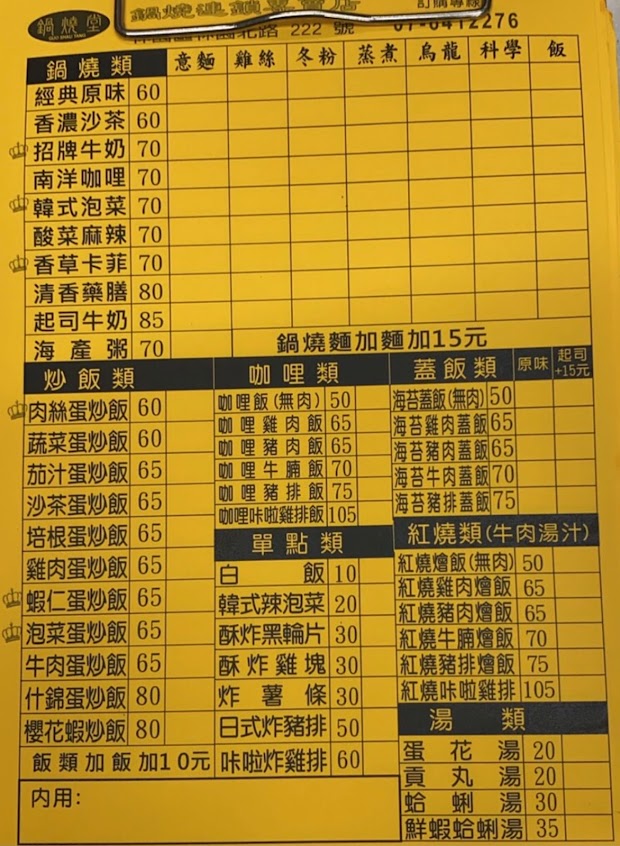 鍋燒堂
222 號
鍋燒類 意麵 雞絲 冬粉 蒸煮 烏龍 科學 飯
經典原味 60
香濃沙茶 60
招牌牛奶 70
南洋咖哩 70
韓式泡菜 70
酸菜麻辣 70
香草卡菲 70
清香藥膳 80
起司牛奶 85
海產粥 70
鍋燒麵加麵加15元
炒飯類
肉絲蛋炒飯 60
蔬菜蛋炒飯 60
茄汁蛋炒飯 65
沙茶蛋炒飯 65
培根蛋炒飯 65
雞肉蛋炒飯 65
蝦仁蛋炒飯 65
泡菜蛋炒飯 65
牛肉蛋炒飯 65
什錦蛋炒飯 80
櫻花蝦炒飯 80
飯類加飯加10元
咖哩類
咖哩飯(無肉) 50
咖哩雞肉飯 65
咖哩豬肉飯 65
咖哩牛腩飯 70
咖哩豬排飯 75
咖哩咔啦雞排飯 105
單點類
白飯 10
韓式辣泡菜 20
酥炸黑輪片 30
酥炸雞塊 30
炸薯條 30
日式炸豬排 50
咔啦炸雞排 60
蓋飯類 原味 起司+15元
海苔蓋飯(無肉) 50
海苔雞肉蓋飯 65
海苔豬肉蓋飯 65
海苔牛肉蓋飯 70
海苔豬排蓋飯 75
紅燒類(牛肉湯汁)
紅燒燴飯(無肉) 50
紅燒雞肉燴飯 65
紅燒豬肉燴飯 65
紅燒牛腩燴飯 70
紅燒豬排燴飯 75
紅燒咔啦雞排 105
湯類
蛋花湯 20
貢丸湯 20
蛤蜊湯 30
鮮蝦蛤蜊湯 35
內用: